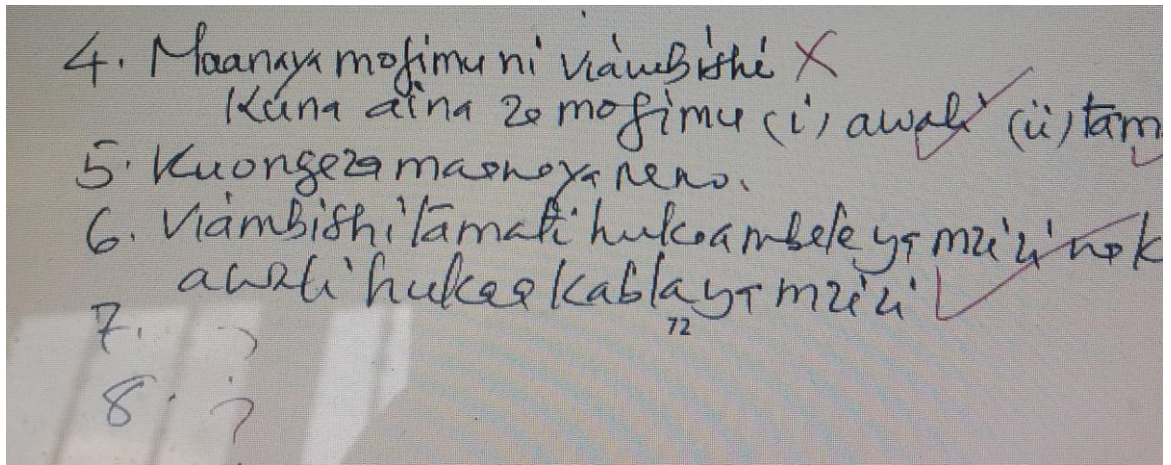 4. Maana ya mofimu ni viambishi X
Kuna aina za mofimu (i) awali (ii) tam
5. Kuongeza maana ya neno.
6. Viambishi tamati hukaa mbele ya mzizi na k
awali hukaa kabla ya mzizi
72
7. ?
8. ?